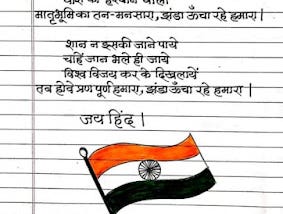 मातृभूमिका तन-मनसारा, झंडा ऊँचा रहे हमारा |
शान न इसकी जाने पाये
चहिं जान भले ही जाये
विश्व विजय कर के दिखलायें
तब होवे प्रण पूर्ण हमारा, झंडा ऊँचा रहे हमारा |
जय हिंद |